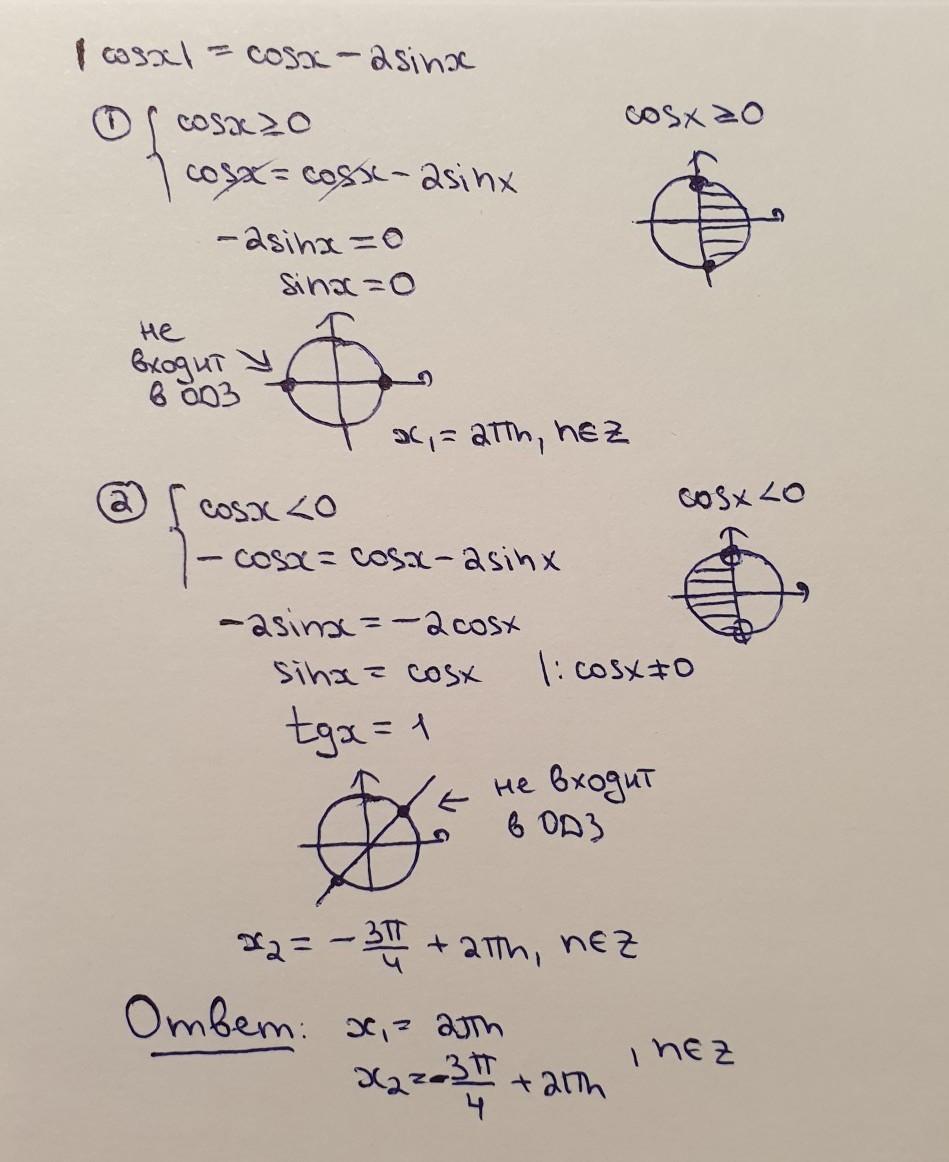 |cosx| = cosx - 2sinx
① { cosx ≥ 0
cosx = cosx - 2sinx
cosx ≥ 0
-2sinx = 0
sinx = 0
не
входит
в ОДЗ
x₁ = 2πn, n∈Z
② { cosx < 0
- cosx = cosx - 2sinx
cosx < 0
-2sinx = -2cosx
sinx = cosx |: cosx ≠ 0
tgx = 1
не входит
в ОДЗ
x₂ = - 3π/4 + 2πn, n∈Z
Ответ: x₁ = 2πn
x₂ = - 3π/4 + 2πn , n∈Z